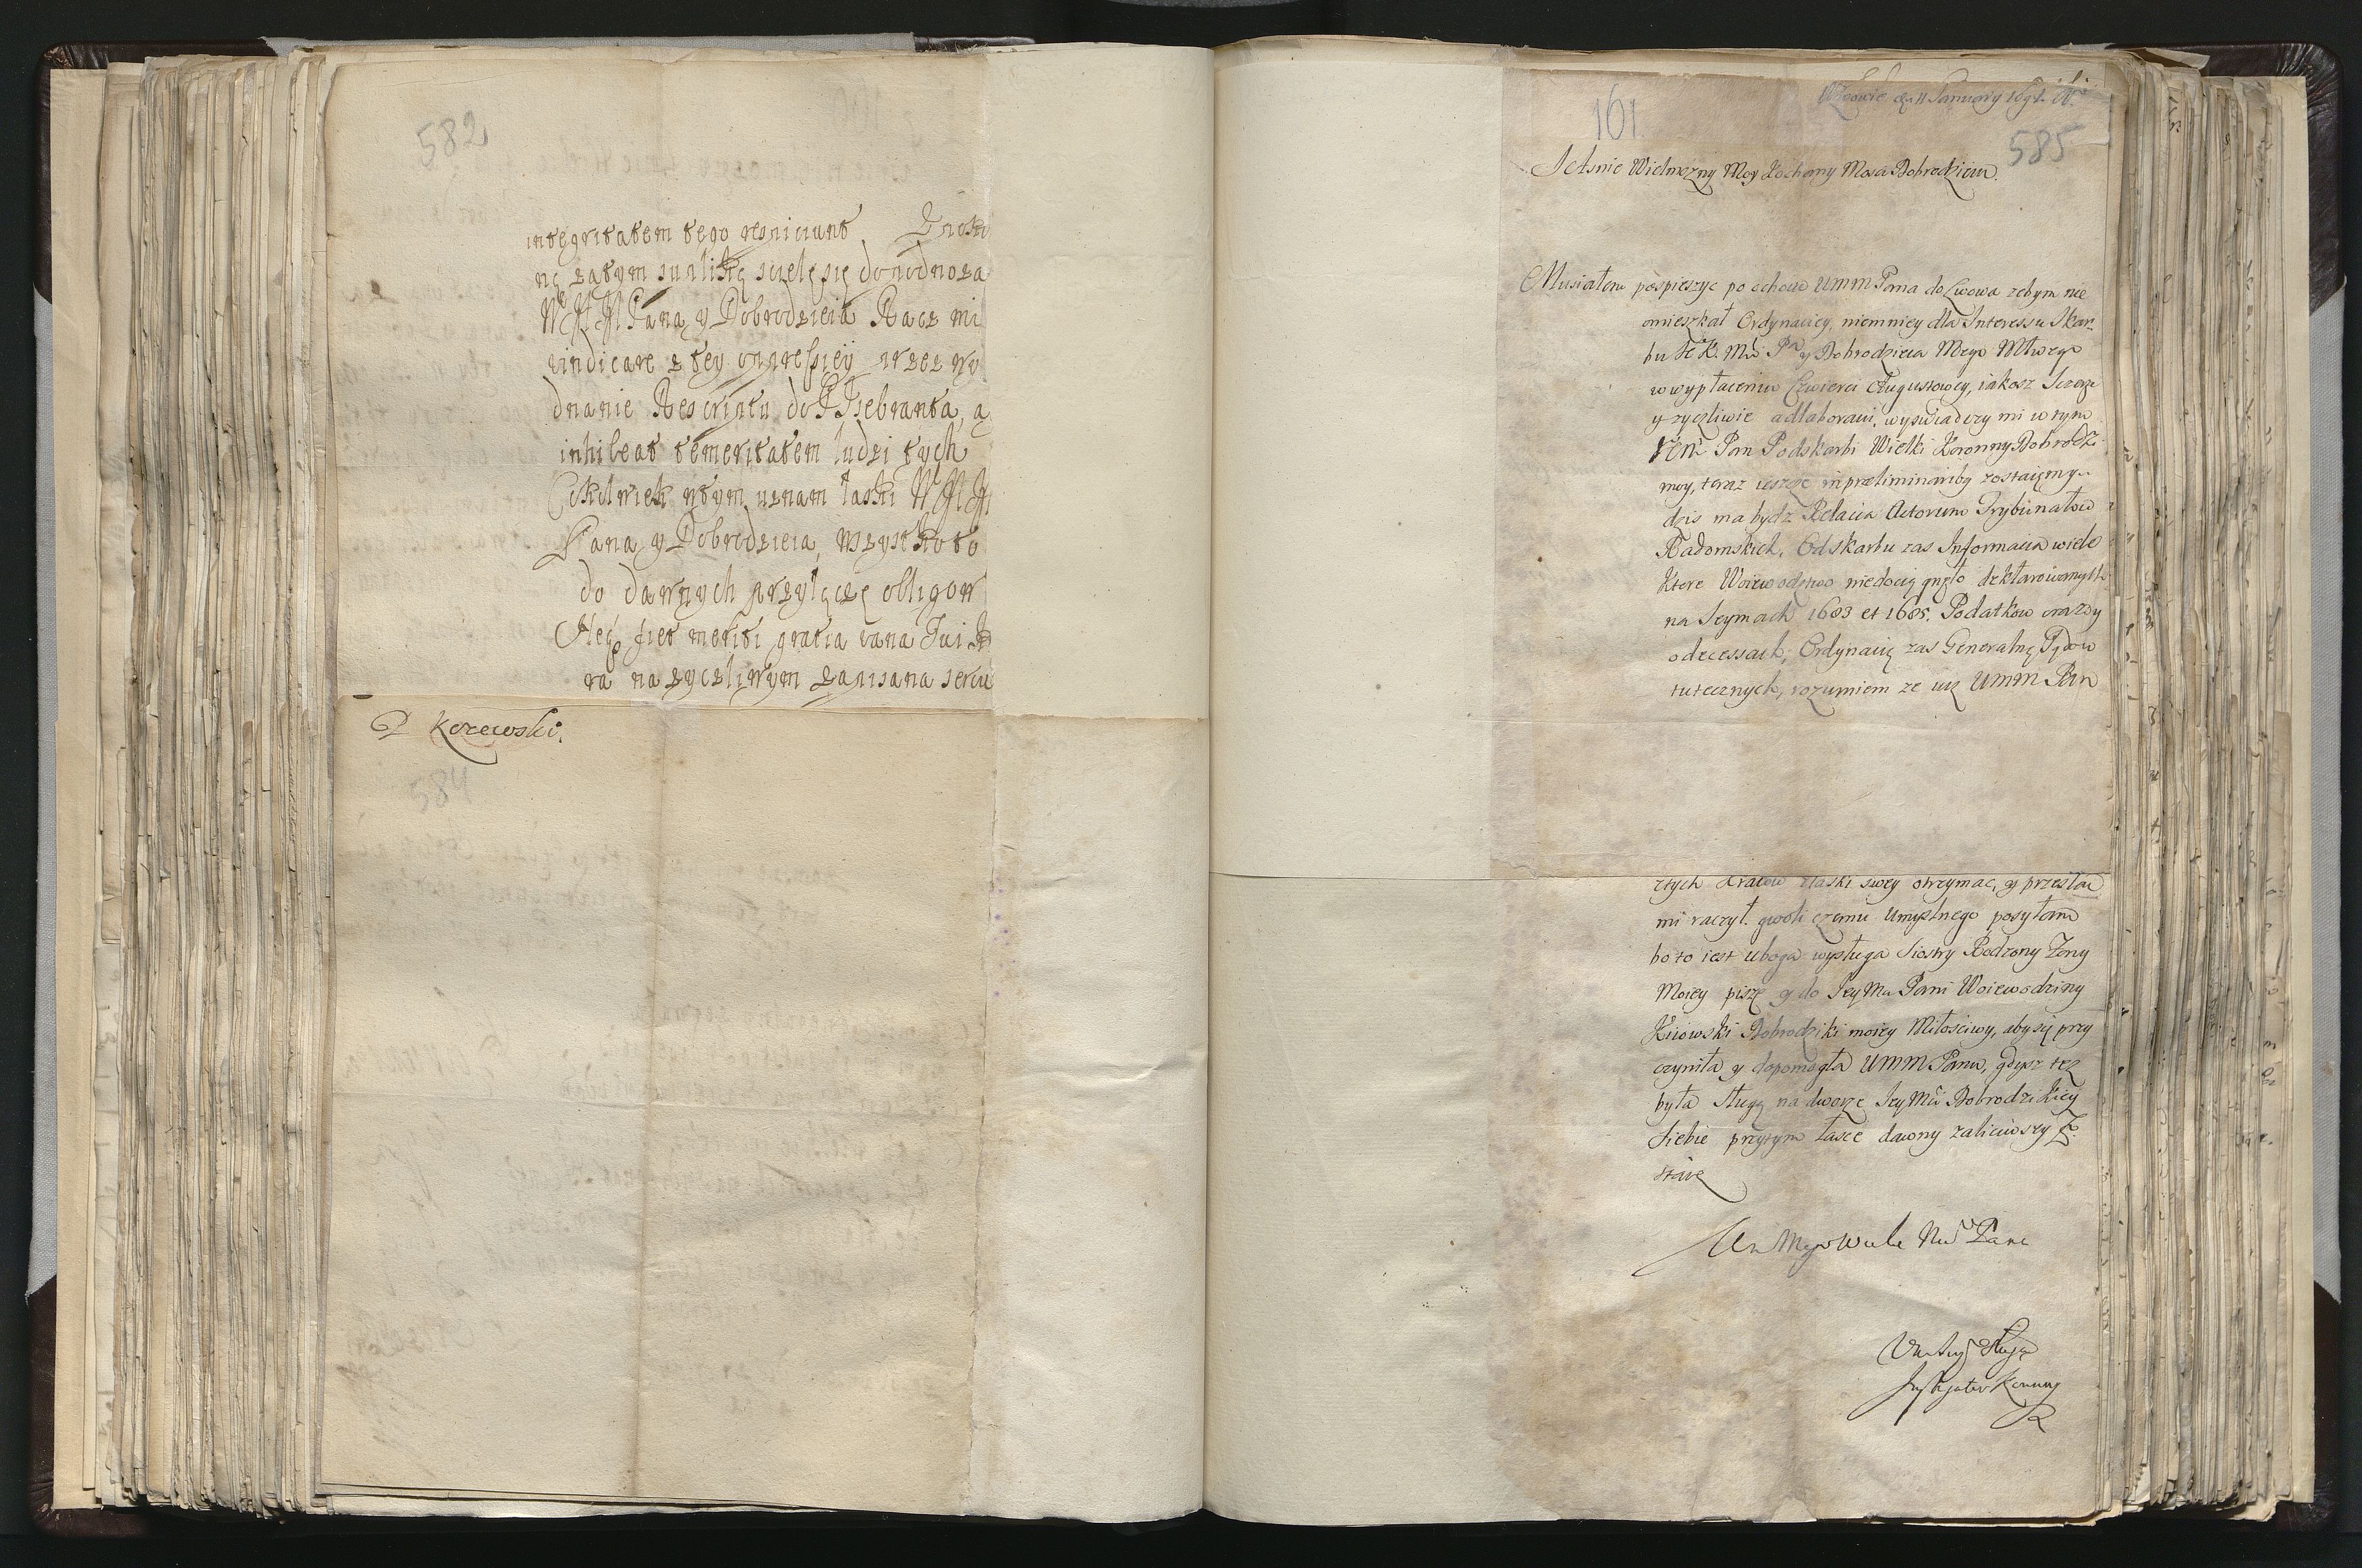 582
integritatem tego respiciunt
ną zatym supliką scielę się do podnoza
WMMPana y Dobrodzieia Racz mi
vindicare z tey oppressiey przez wy
dnanie Rescriptu do P
inhibeat temeritatem ludzi tych
Cokolwiek w tym uznam łaski WMM
Pana y Dobrodzieia, wszystko to
do dawnych przyłączę obligow
Nec fiet meriti gratia vana Tui
na zyczliwym zapisana sercu
P Korewski.
584
161
585
Jasnie Wielmozny Moy Kochany Mosci Dobrodzieiu.
Musiałem pospieszyc po UMM Pana do Lwowa zebym nie
omieszkał Ordynaciey, niemniey dla Interessu Skar
bu Je K. Mci Pa y Dobrodzieia Mego Młwego
w wypłaceniu Cwierci Augustowey, iakosz Szczeze
y zyczliwie adlaboravi, wyswiadczy mi w tym
Pan Podskarbi Wielki Koronny Dobrodz
moy, teraz ieszcze in praeliminariby zostaiemy.
dzis ma bydz Relacia Actorum Trybunałow
Radomskich, Od skarbu zas Informacia wiele
ktore Woiewodztwo niedociągnęło deklarowanych
na Seymach 1683 et 1685. Podatkow oraz y
o decessach, Ordynacię zas Generalną
tutecznych, rozumiem ze iusz UMM Pan
łaski swey otrzymac, y przesłac
mi raczył. gwoli czemu Umyslnego posyłam
bo to iest uboga wysługa Siostry Rodzony Zony
Moiey piszę y do Jey Mci Pani Woiewodziny
Kiiowski Dobrodziki moiey Miłosciwy, aby się przy
czyniła y dopomogła UMM Panu, gdysz tez
była sługą na dworze Jey Mci Dobrodzikiey
Siebie przytym łasce dawny zaliciwszy Zo
staię
Mego Wielce Mci Pana
sługa
Instigator Koronny